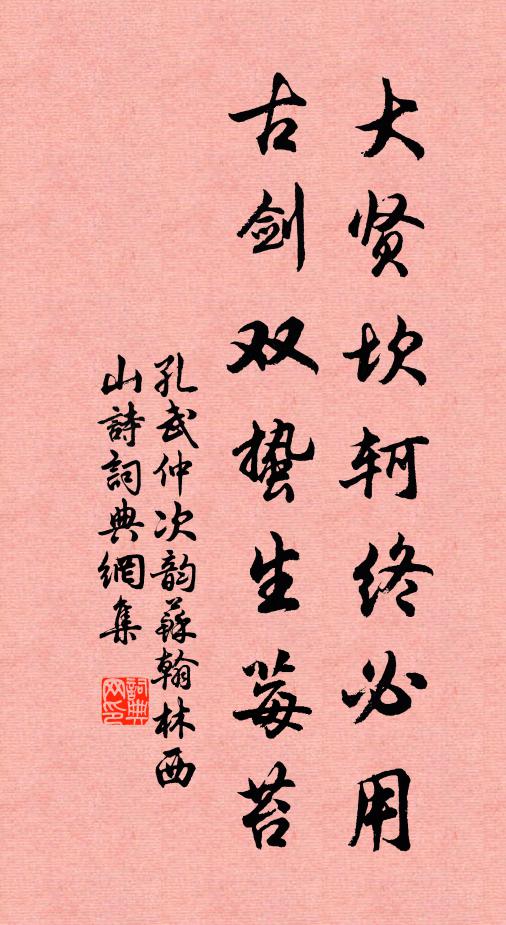 大贤坎轲终必用
古剑双蛰生莓苔
孔武仲次韵蘇翰林西
山詩詞典網集
詞典
网印